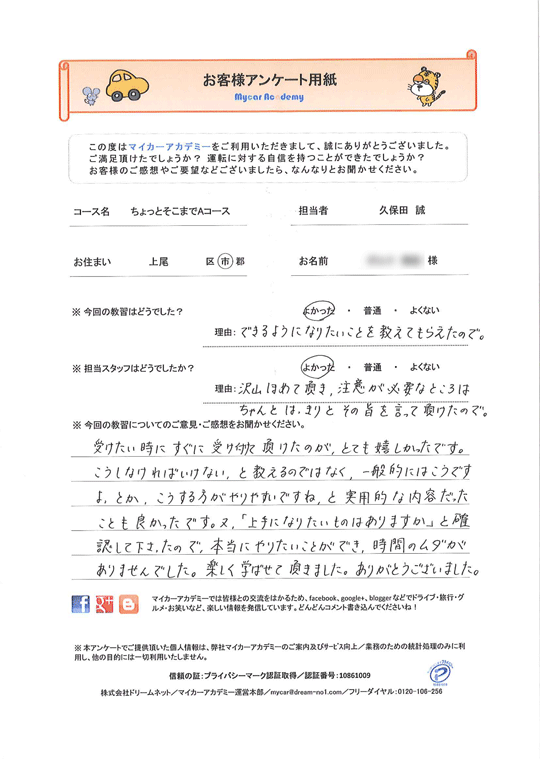 お客様アンケート用紙
Mycar Academy
この度はマイカーアカデミーをご利用いただきまして、誠にありがとうございました。
ご満足頂けたでしょうか？ 運転に対する自信を持つことができたでしょうか？
お客様のご感想やご要望などございましたら、なんなりとお聞かせください。
コース名 ちょっとそこまでAコース 担当者 久保田 誠
お住まい 上尾 区 市 郡 お名前 様
※ 今回の教習はどうでした？ よかった ・ 普通 ・ よくない
理由: できるようになりたいことを教えてもらえたので。
※ 担当スタッフはどうでしたか？ よかった ・ 普通 ・ よくない
理由: 沢山ほめて頂き、注意が必要なところは
ちゃんとはっきりとその旨を言って頂けたので。
※ 今回の教習についてのご意見・ご感想をお聞かせください。
受けたい時にすぐに受け付て頂けたのが、とても嬉しかったです。
こうしなければいけない、と教えるのではなく、一般的にはこうです
よ、とか、こうする方がやりやすいですね、と実用的な内容だった
ことも良かったです。又、「上手になりたいものはありますか」と確
認して下さったので、本当にやりたいことができ、時間のムダが
ありませんでした。楽しく学ばせて頂きました。ありがとうございました。
マイカーアカデミーでは皆様との交流をはかるため、facebook、google+、bloggerなどでドライブ・旅行・グ
ルメ・お笑いなど、楽しい情報を発信しています。どんどんコメント書き込んでくださいね！
※ 本アンケートでご提供頂いた個人情報は、弊社マイカーアカデミーのご案内及びサービス向上／業務のための統計処理のみに利
用し、他の目的には一切利用いたしません。
信頼の証：プライバシーマーク認証取得／認証番号：10861009
株式会社ドリームネット／マイカーアカデミー運営本部／mycar@dream-no1.com／フリーダイヤル：0120-106-256